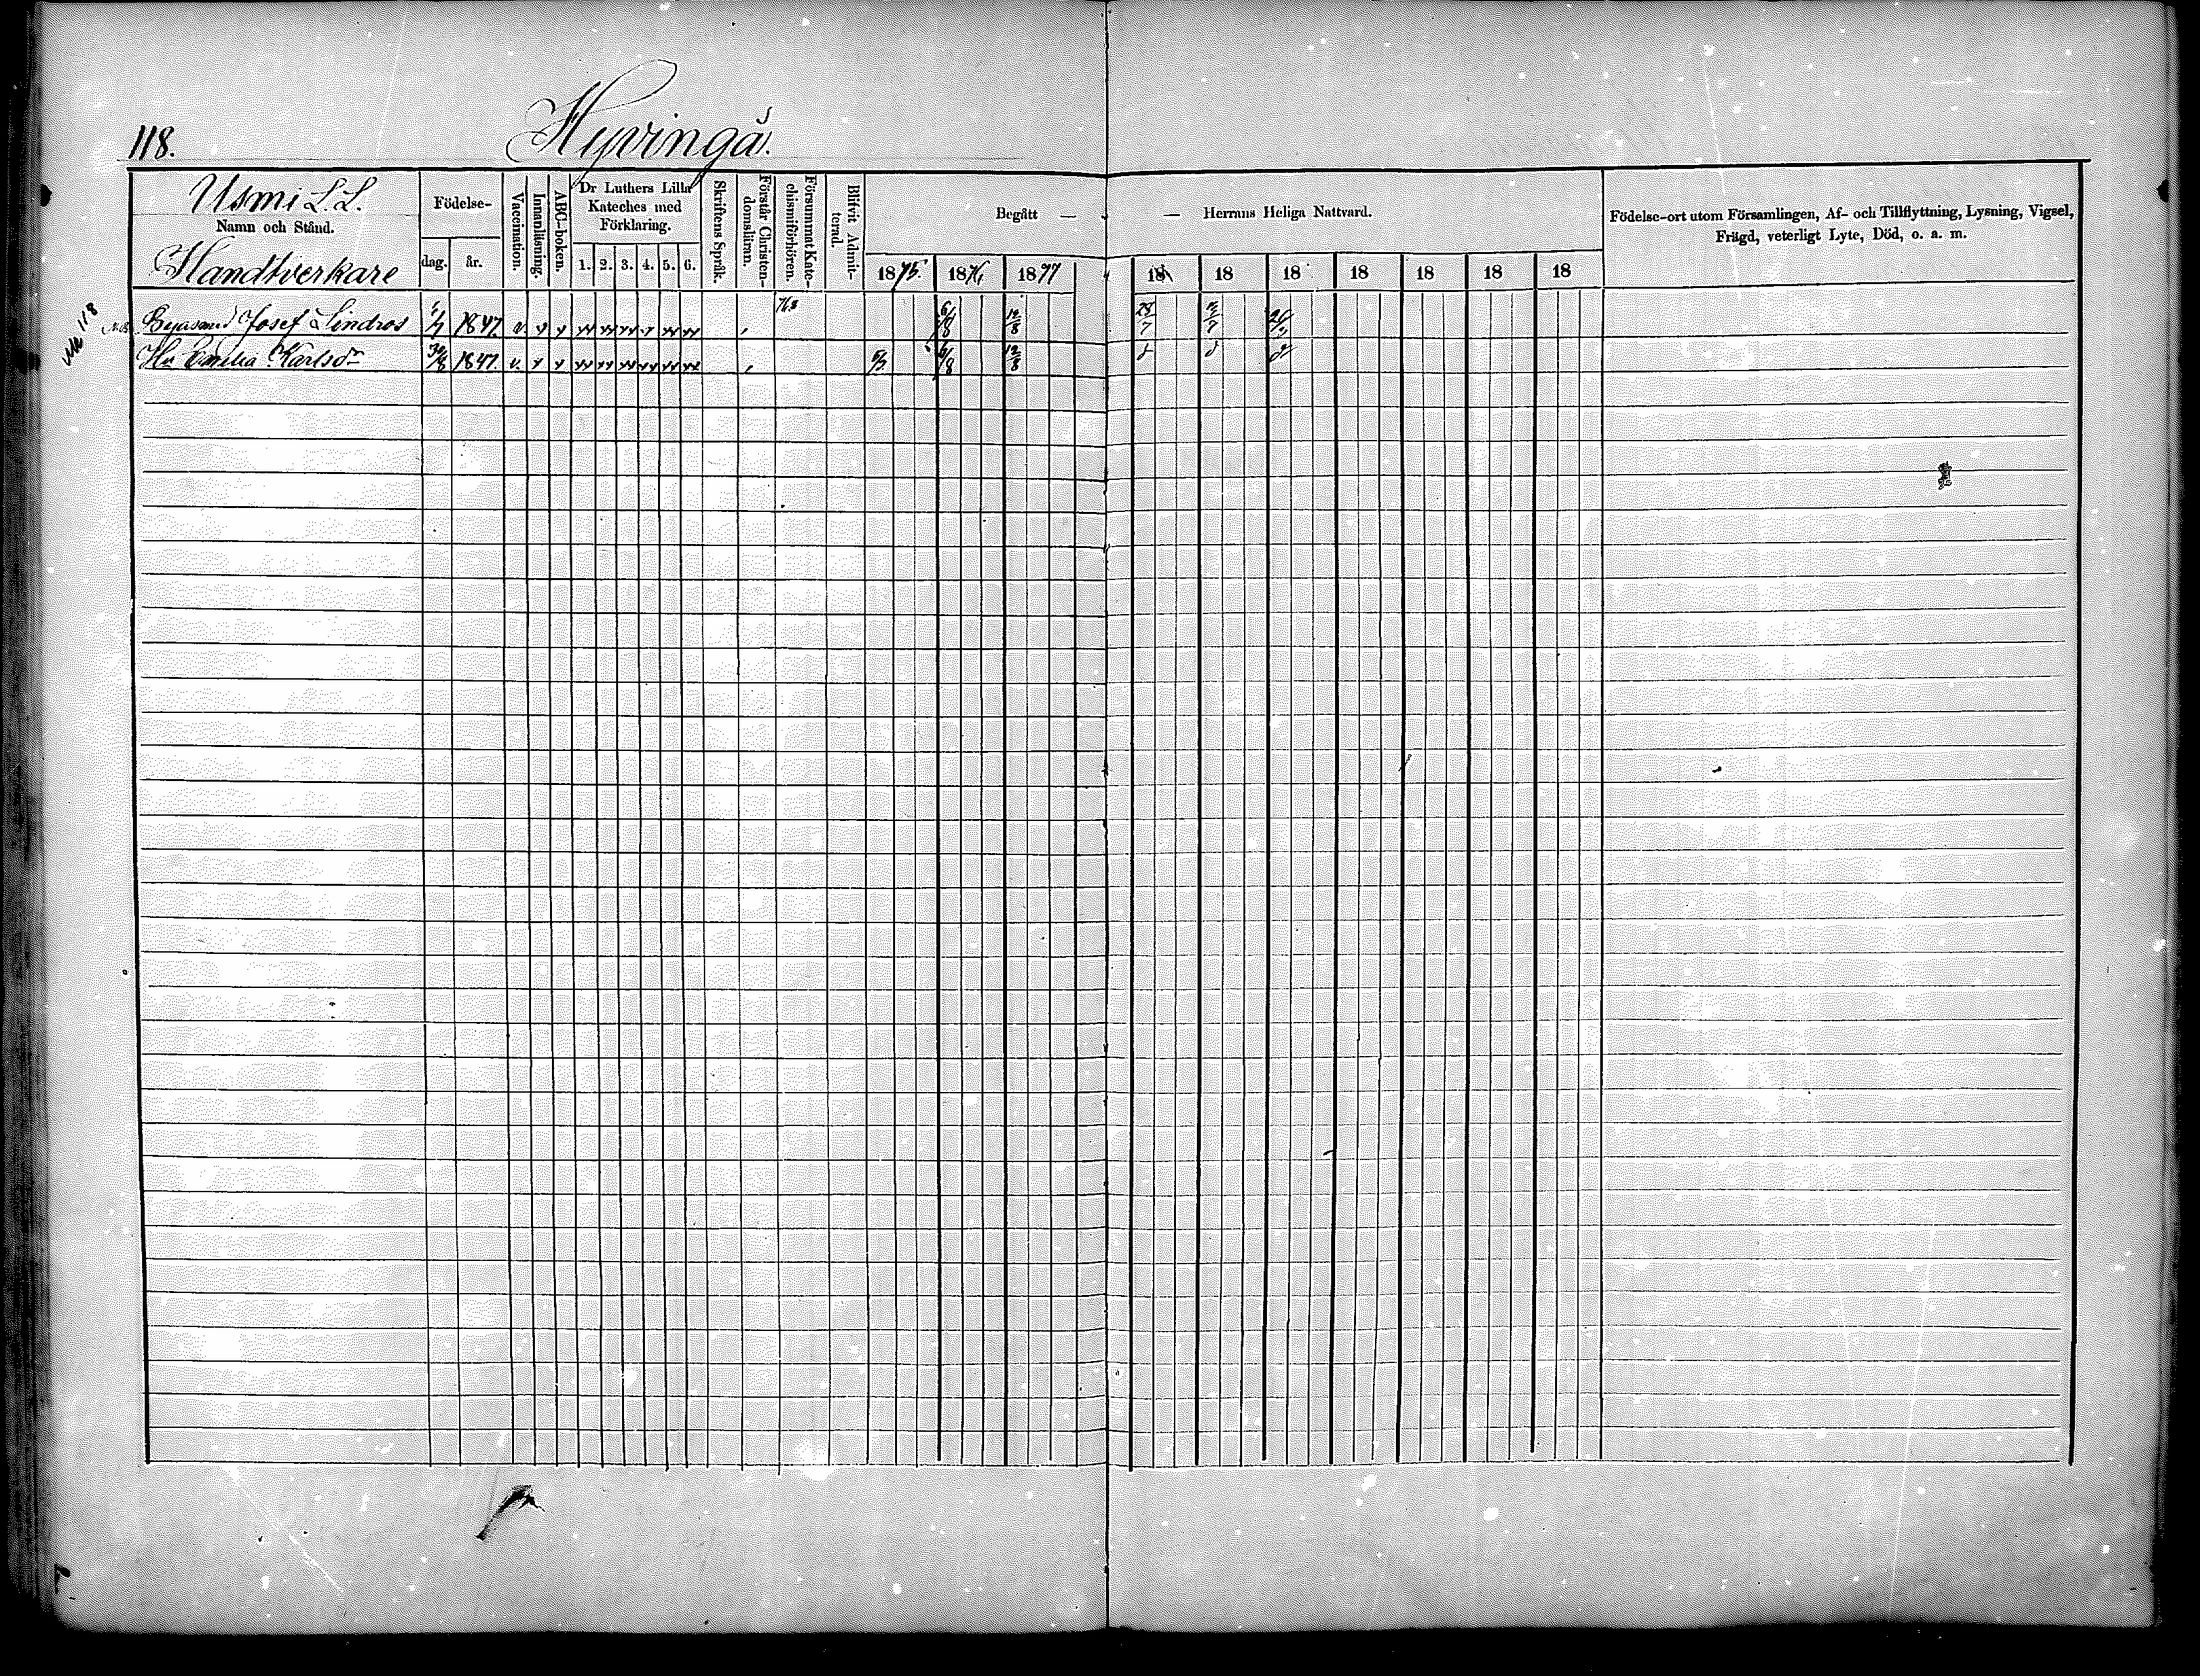 118.
Hyvingå.
Usmi L.L.
Namn och Stånd.
Handtverkare
Födelse-
dag.
år.
Vaccination.
Innanläsning.
ABC-boken.
Dr Luthers Lilla
Kateches med
Förklaring.
1. 2. 3. 4. 5. 6.
Skriftens Språk.
Förstår Christen-
domslüran.
Försummat Kate-
chismiförhören.
Blifvit Admit-
terad.
Begått —
— Herrans Heliga Nattvard.
1875. 1876 1877
18 18 18 18 18 18 18
Födelse-ort utom Församlingen, Af- och Tillflyttning, Lysning, Vigsel,
Frägd, veterligt Lyte, Död, o. a. m.
118
Josef Lindros 1847. v. 6/8 12/8
Hu Emilia Karlsdr 1847. v. 6/8 12/8